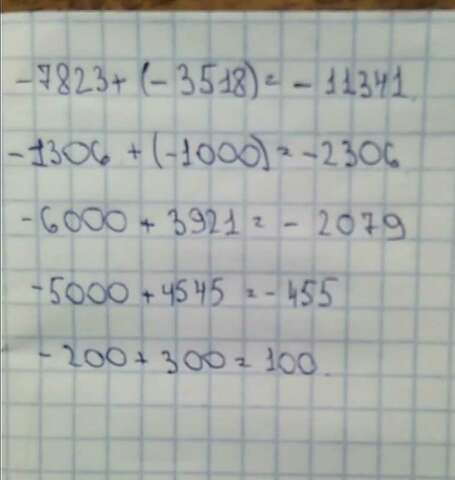 -7823+(-3518)=-11341
-1306+(-1000)=-2306
-6000+3921=-2079
-5000+4545=-455
-200+300=100.